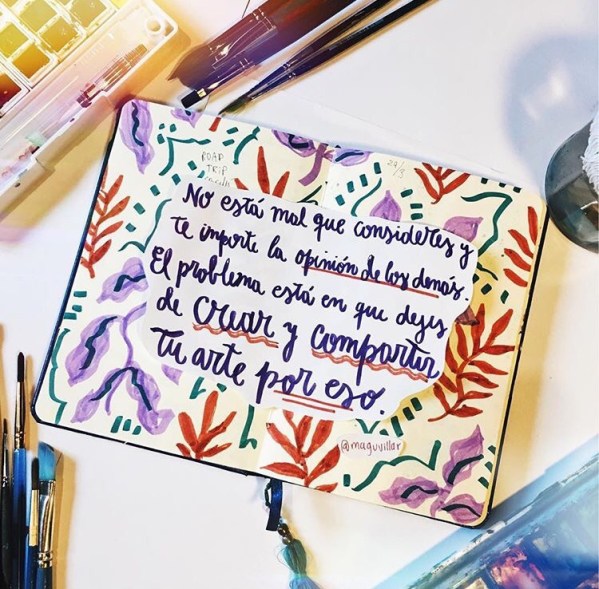 ROAD
TRIP
27/3
No está mal que consideres y
te importe la opinión de los demás.
El problema está en que dejes
de crear y compartir
tu arte por eso.
@maguvillar